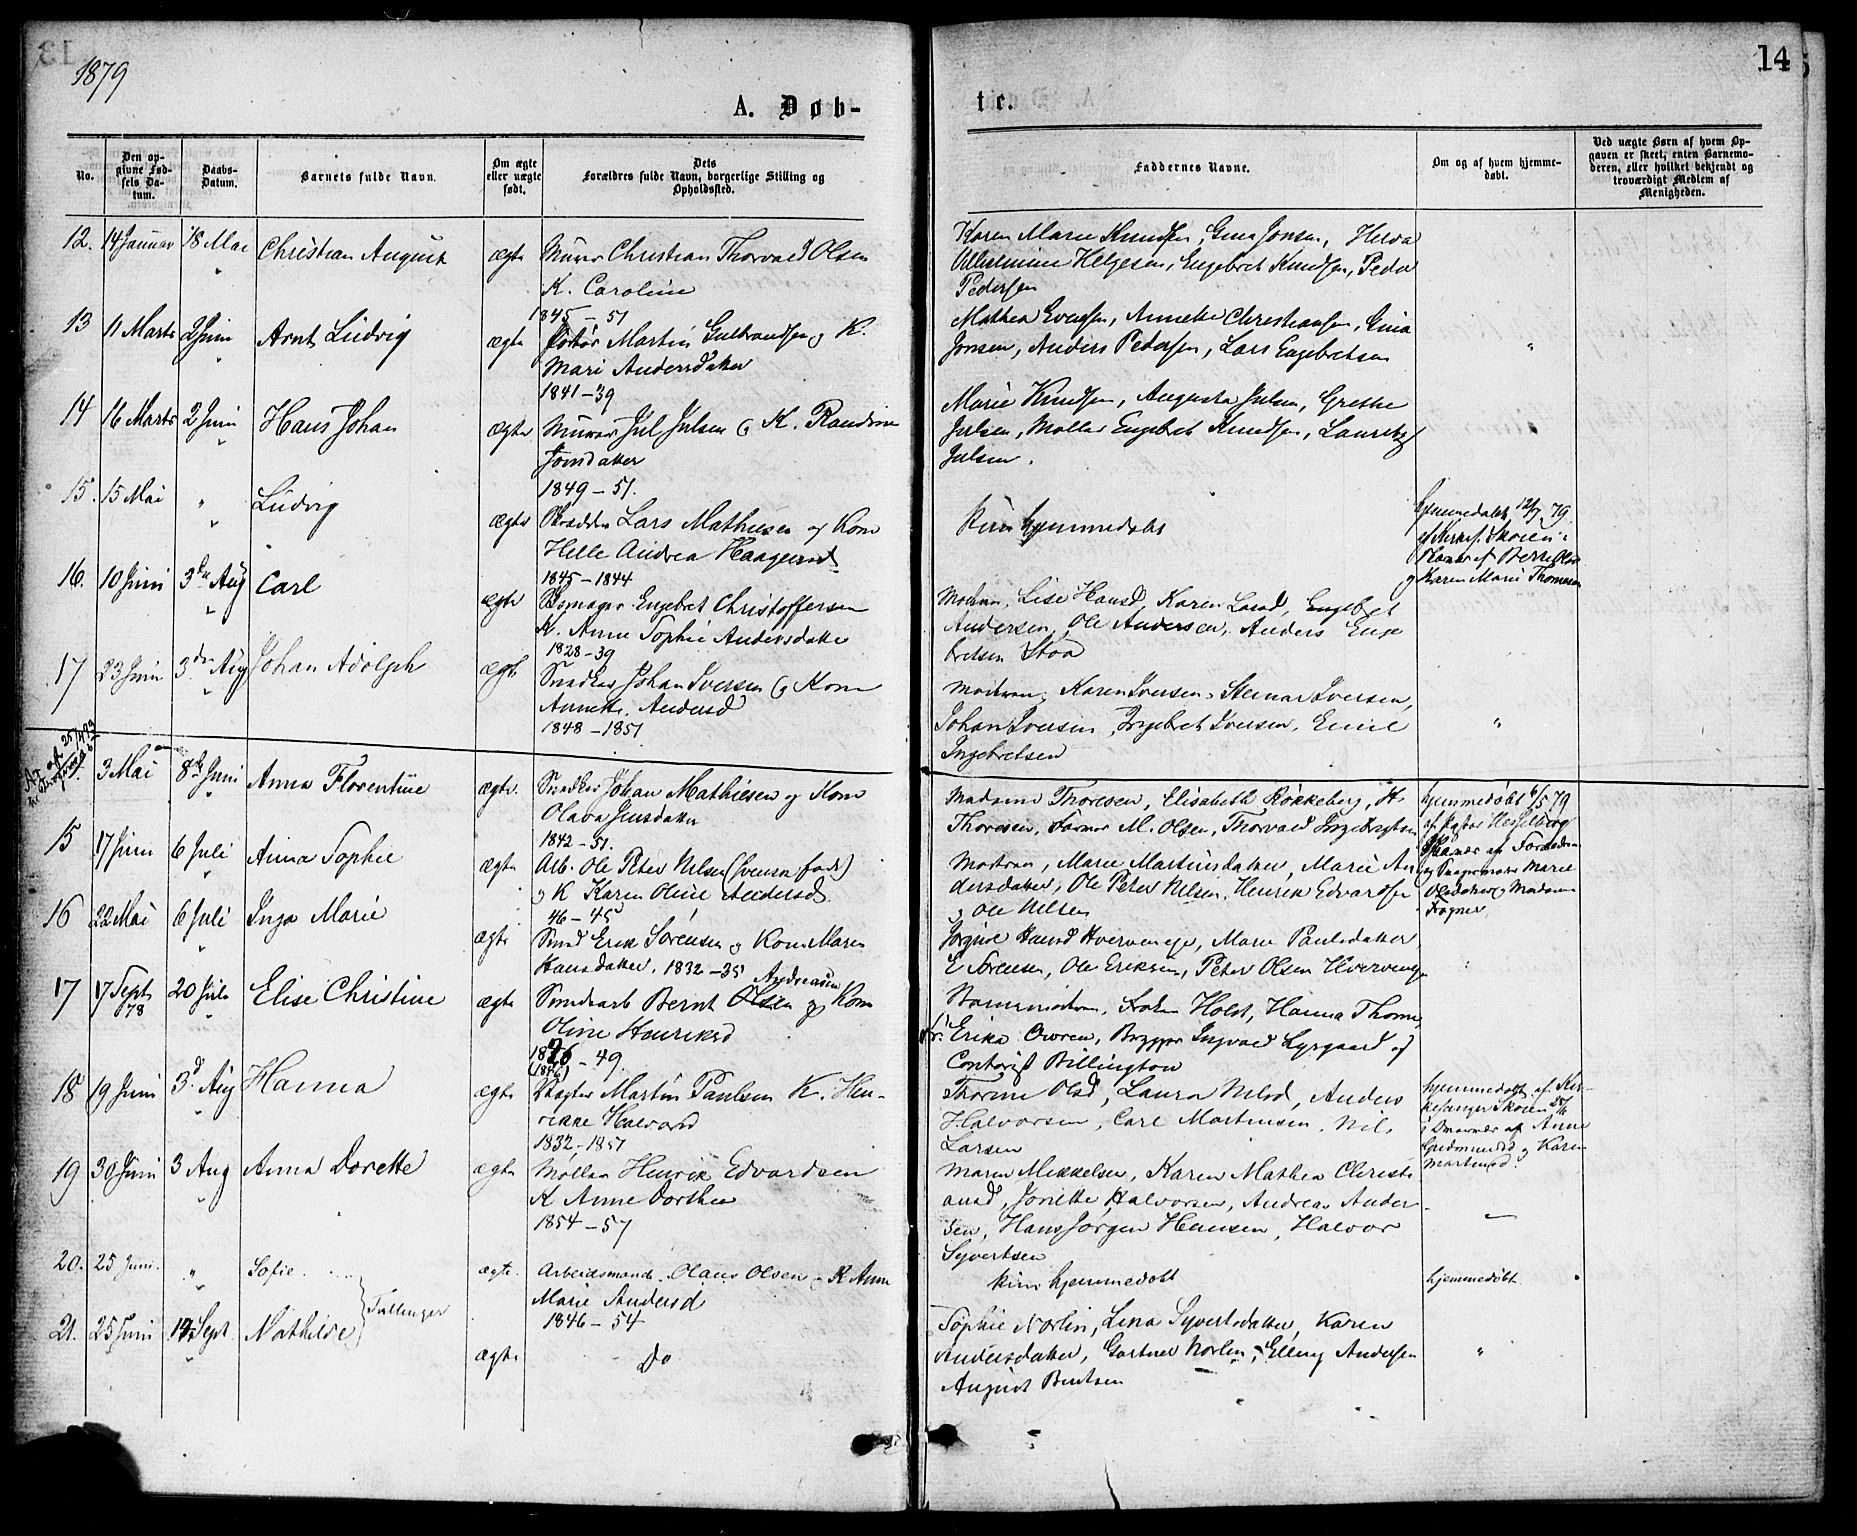 1879
14
A. Døb-
te.
No.
Den op-
givne Fød-
sels Da-
tum.
Daabs-
Datum.
Barnets fulde Navn.
Om ægte
eller uægte
født.
Dets
Forældres fulde Navn, borgerlige Stilling og
Opholdssted.
Faddernes Navne.
Om og af hvem hjemme-
døbt.
Ved uægte Børn af hvem Op-
gaven er skeet, enten Barnemo-
deren, eller hvilket bekjendt og
troværdigt Medlem af
Menigheden.
12. 14 Januar 18 Mai Christian August ægte Murer Christian Thorvald Olsen
K. Caroline
1845 - 51
Karen Marie Knudsen, Gina Jonsen, Helva
Vilhelmine Helgesen, Engebret Knudsen, Peder
Pedersen
13 11 Marts 2 Juni Arnt Ludvig ægte Martin Gulbrandsen og K.
Mari Andersdatter
1841 - 39
Mathea Evensen, Annette Christiansen, Gina
Jonsen, Anders Pedersen, Lars Engebretsen
14 16 Marts 2 Juni Hans Johan ægte Murer Jul Julsen og K. Randine
Jonsdatter
1849 - 51.
Marie Knudsen, Augusta Julsen, Grethe
Julsen, Møller Engebret Knudsen, Lauritz
Julsen.
15. 15 Mai " Ludvig ægte Skrædder Lars Mathisen og Kone
Helle Andrea Haagensd.
1845 - 1844
Kun hjemmedøbt
hjemmedøbt 12/7 79.
af Kirkes. Skøien i
Nærvær af Berte Olsen
og Karen Marie Thomesen
16. 10 Juni 3die Aug Carl ægte Skomager Engebret Christoffersen
K. Anne Sophie Andersdatter
1828 - 39
Modren, Lise Hansd, Karen Larsd, Engebret
Andersen, Ole Andersen, Anders Enge
bretsen Stoa
17 23 Juni 3die Aug Johan Adolph ægte Snedker Johan Iversen og Kone
Annette Andersd
1848 - 1851
Modren, Karen Iversen, Steinar Iversen,
Johan Iversen, Ingebret Iversen, Emil
Ingebretsen
3 Mai 8de Juni Anna Florentine ægte. Snedker Johan Mathiesen og Kone
Olava Jensdatter
1842 - 51.
Madame Thoresen, Elisabeth Røkkeberg, H.
Thoresen, Farver M. Olsen, Thorvald Ingebregtsen
hjemmedøbt 6/5 79
af Pastor Hesselberg
i Nærvær af Faderen
og Marie
Olsdatter og Madame
Fagner
15 17 Juni 6 Juli Anna Sophie ægte Arb. Ole Peter Nilsen (Svensk født)
og K Karen Oline Andersd.
46 - 45
Modren, Marie Martinsdatter, Marie An
dersdatter, Ole Peter Nilsen, Henrik Edvardsen
og Ole Nilsen
16 22 Mai 6 Juli Inga Marie ægte Smed Erik Sørensen og Kone Maren
Hansdatter. 1832 - 35
Jørgine Hansd Hvervenge, Marie Paulsdatter
E Sørensen, Ole Eriksen, Peter Olsen Hvervenge
17 17 Sept 78 20 Juli Elise Christine ægte Bernt Olsen Andreasen og Kone
Oline Henriksd
1826 - 49.
(1846)
Barnemodren, Frøken Holst, Hanna Thome,
fr. Erika Owren, Brygger Ingvald Lysgaard og
Contorist Billington
18 19 Juni 3d Aug Hanna ægte Vægter Martin Paulsen K. Hen-
rikke Halvorsd
1832, 1851
Thorine Olsd, Laura Nilsd, Anders
Halvorsen, Carl Mortensen, Nils
Larsen
hjemmedøbt af Kir-
kesanger Skøien
i Nærvær af Anne
Gudmundsd og Karen
Martinsd.
19 30 Juni 3 Aug Anna Dorette ægte Møller Henrik Edvardsen
K Anne Dorthea
1854 - 57
Maren Mikkelsen, Karen Mathea Christi
ansd, Jonette Halvorsen, Andreas Ander-
sen, Hans Jørgen Hansen, Halvor
Syvertsen
20. 25 Juni. " Sofie ægte. Arbeidsmand Olaus Olsen og K Anne
Marie Andersd
1846 - 54
kun hjemmedøbt
hjemmedøbt.
21. 25 Juni 14 Sept Mathilde Tvillinger ægte Do
Sophie Norlin, Lena Syvertsdatter, Karen
Andersdatter, Gartner Norlin, Elling Andersen
August Bentsen